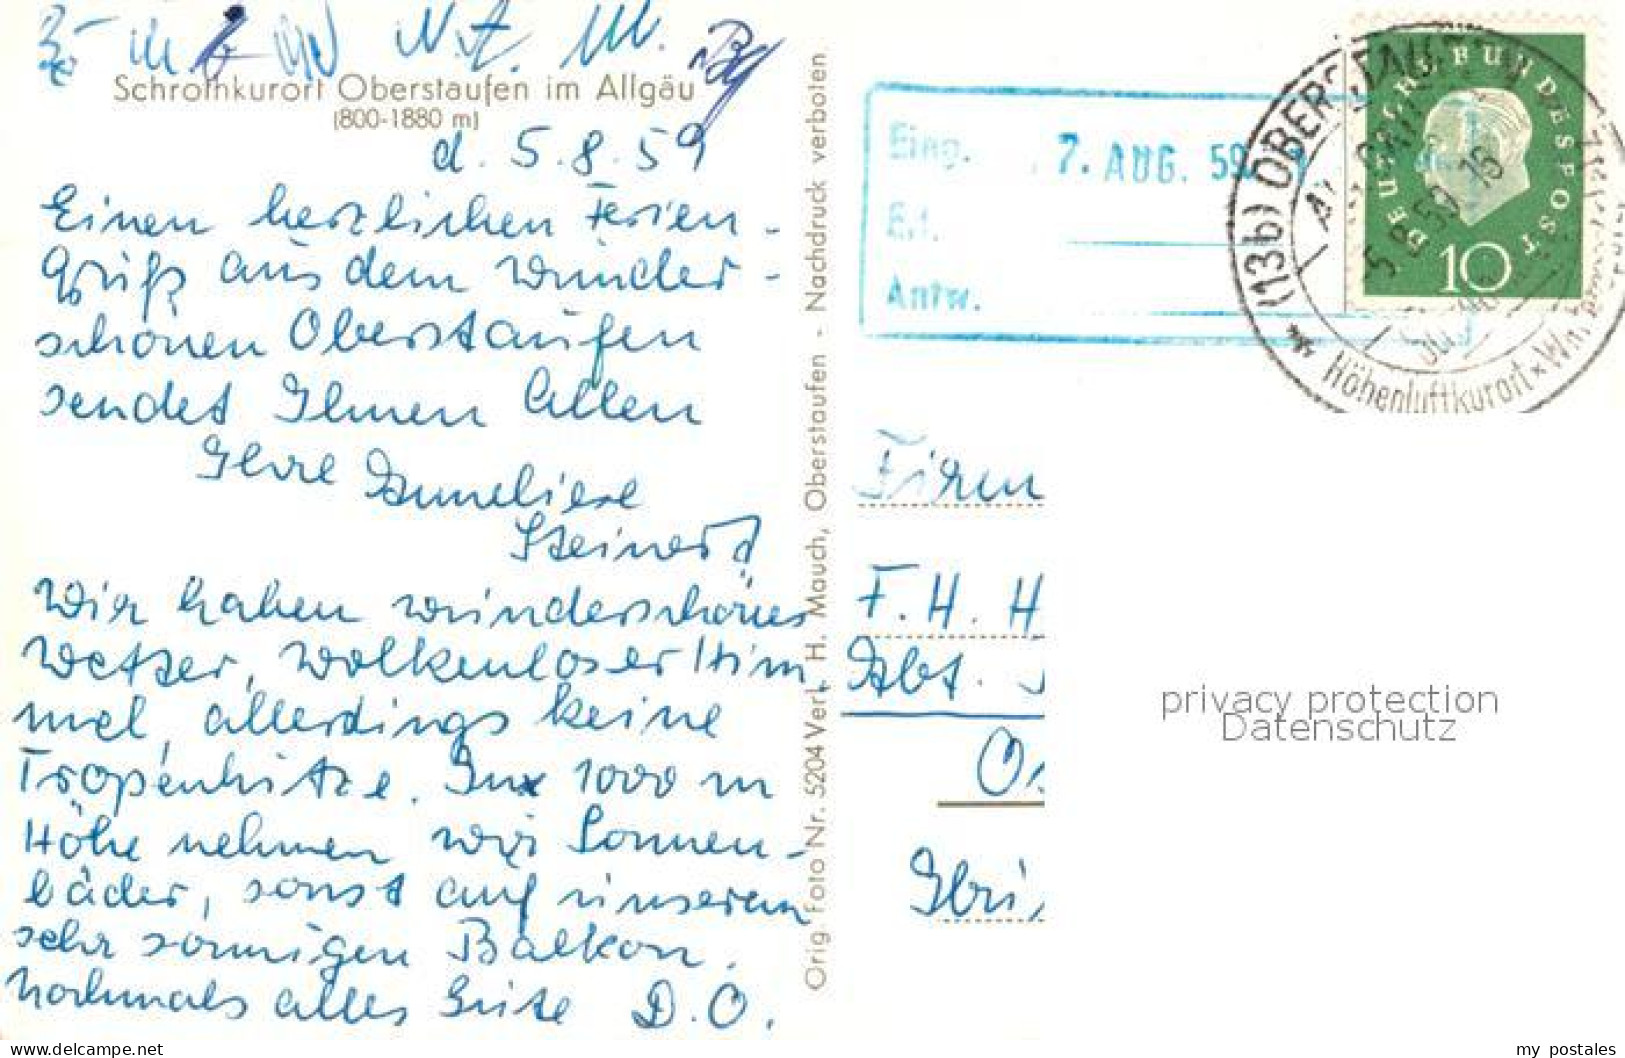 Schrothkurort Oberstaufen im Allgäu
(800-1880 m)
d. 5.8.59
Einen herzlichen Ferien-
gruß aus dem wunder-
schönen Oberstaufen
sendet Ihnen Allen
Ihre Anneliese
Steinert
Wir haben wunderschönes
Wetter, wolkenloser Him
mel, allerdings keine
Tropenhitze. In 1000 m
Höhe nehmen wir Sonnen-
bäder, sonst auf unserem
sehr sonnigen Balkon.
Nochmals alles Gute D.O.
Orig. Foto Nr. 5204 Verl. H. Mauch, Oberstaufen - Nachdruck verboten
Eing. 7. AUG. 59
Erl.
Antw.
DEUTSCHE BUNDESPOST
10
(13b) OBERSTAUFEN
5.8.59.16
Höhenluftkurort
F.H. H
Abt.
privacy protection
Datenschutz
delcampe.net
my_postales